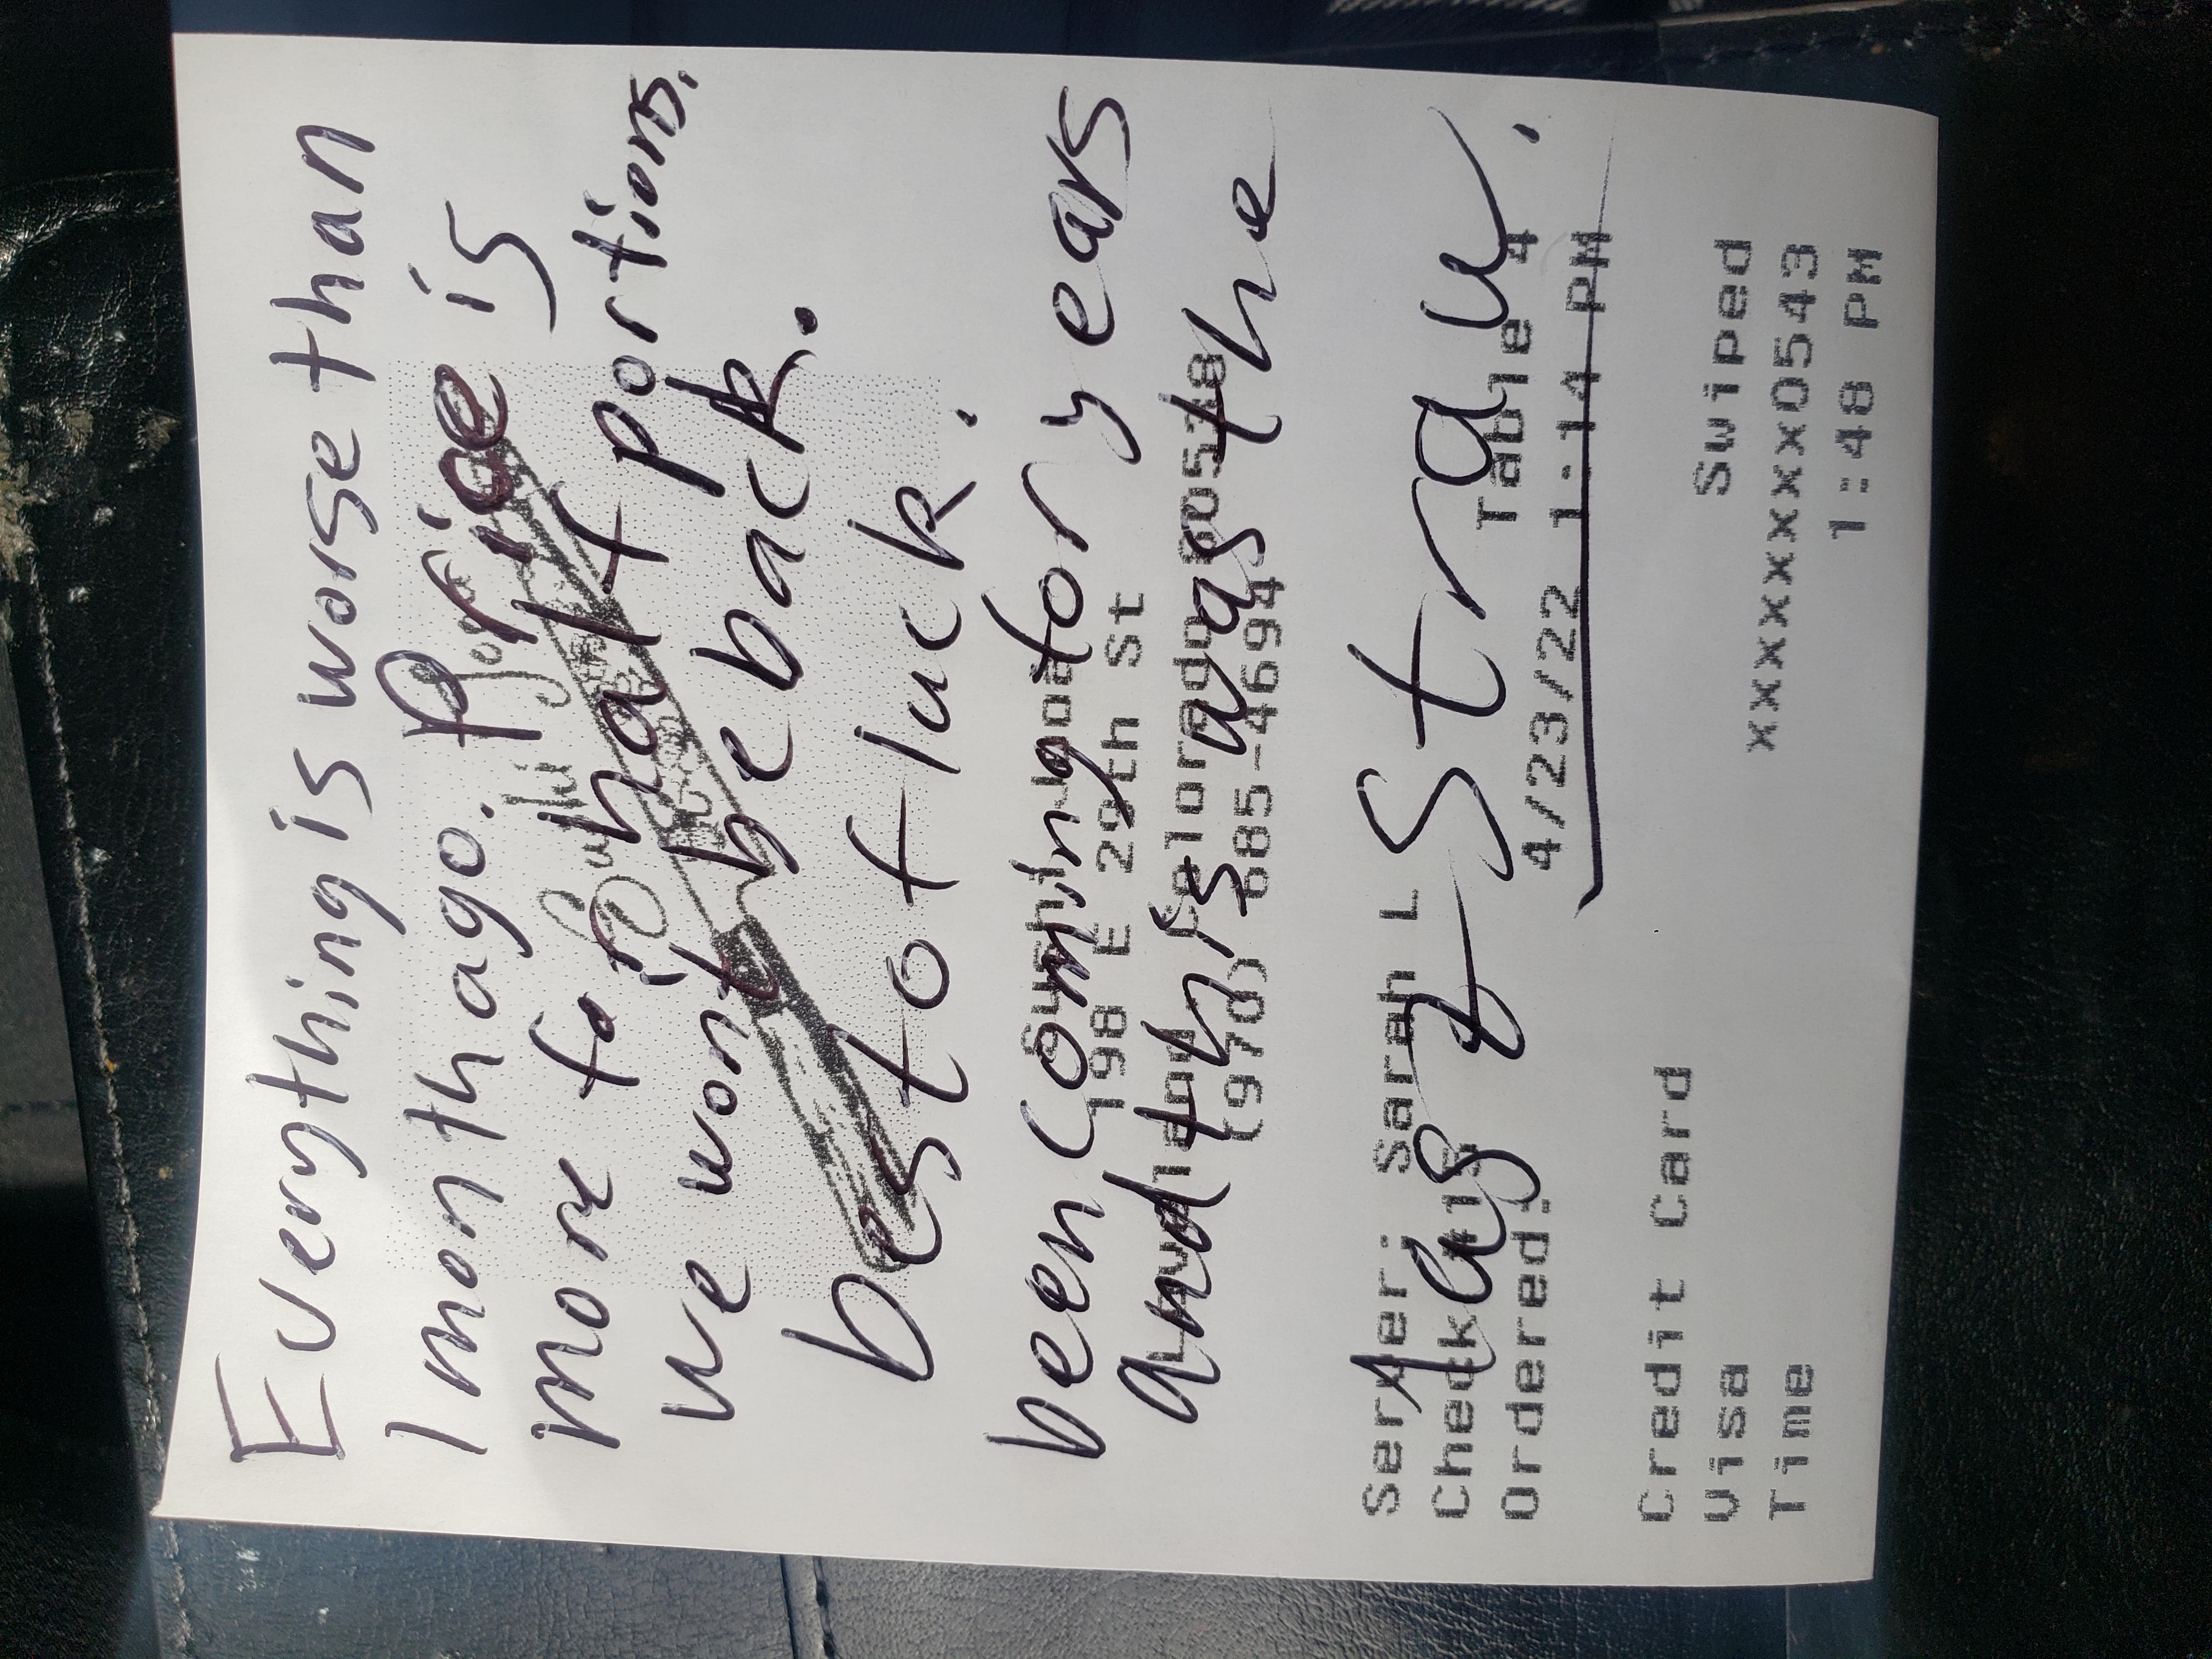 Everything is worse than
1 month ago. Price is
more for half portions.
we wont be back.
best of luck.
been coming for years
198 E 29th St
and this was the
(970) 685-4694
Server: Sarah L
last straw.
Table 4
Ordered: 4/23/22 1:14 PM
Credit Card Swiped
Visa xxxxxxxxxxxx0543
Time 1:48 PM